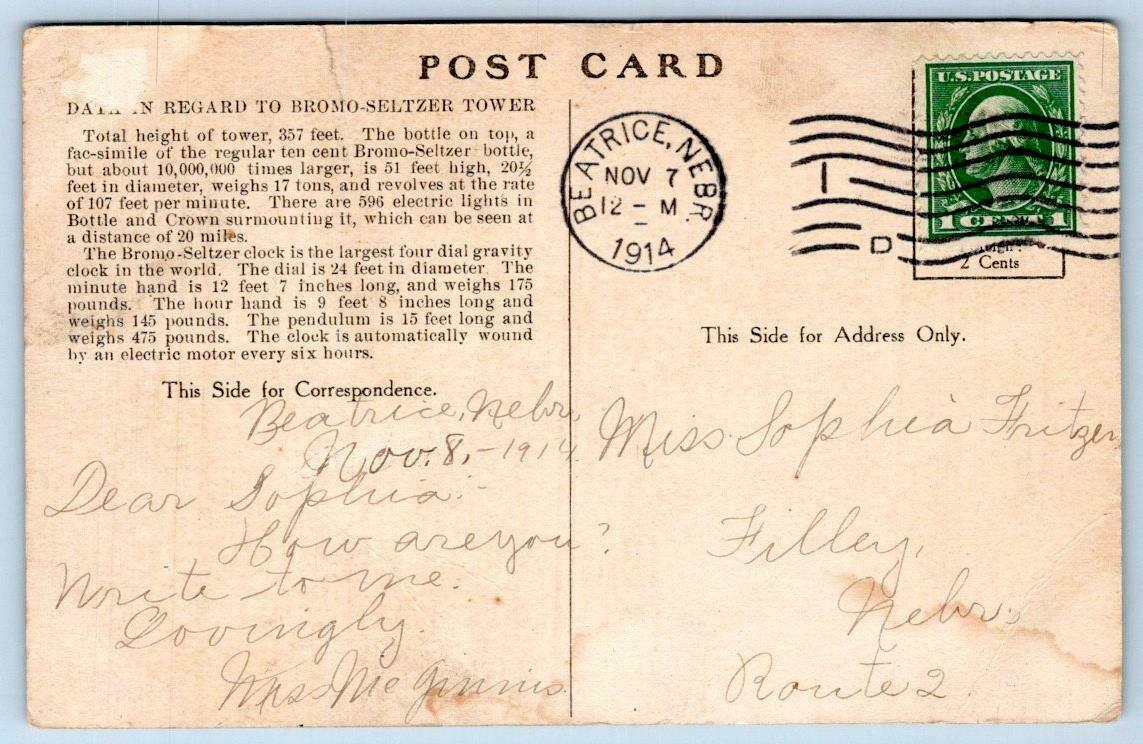 POST CARD
DATA IN REGARD TO BROMO-SELTZER TOWER
Total height of tower, 357 feet. The bottle on top, a
fac-simile of the regular ten cent Bromo-Seltzer bottle,
but about 10,000,000 times larger, is 51 feet high, 20½
feet in diameter, weighs 17 tons, and revolves at the rate
of 107 feet per minute. There are 596 electric lights in
Bottle and Crown surmounting it, which can be seen at
a distance of 20 miles.
The Bromo-Seltzer clock is the largest four dial gravity
clock in the world. The dial is 24 feet in diameter. The
minute hand is 12 feet 7 inches long, and weighs 175
pounds. The hour hand is 9 feet 8 inches long and
weighs 145 pounds. The pendulum is 15 feet long and
weighs 475 pounds. The clock is automatically wound
by an electric motor every six hours.
This Side for Correspondence.
Beatrice, Nebr.
Nov. 8, - 1914
Dear Sophia:-
How are you?
Write to me.
Lovingly.
Miss McGinnis
BEATRICE, NEBR.
NOV 7
12 - M
1914
1
D
U.S. POSTAGE
1 CENT 1
2 Cents
This Side for Address Only.
Miss Sophia Fritzen
Filley,
Nebr.
Route 2